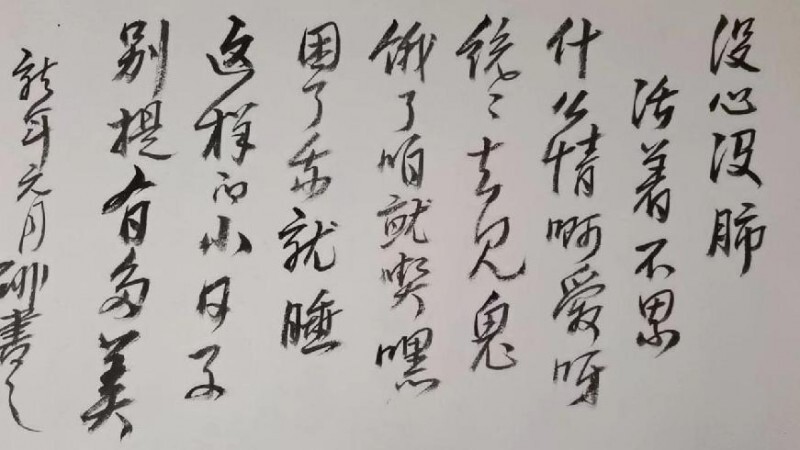 没心没肺
活着不累
什么情啊爱呀
统々去见鬼
饿了咱就喫嘿
困了就睡
这样的小日子
别提有多美
龍年元月書之